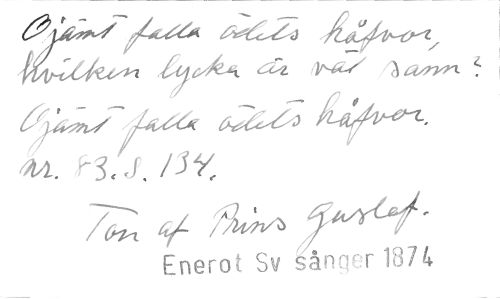 Ojämt falla ödets håfvor,
hvilken lycka är väl sann?
Ojämt falla ödets håfvor.
nr. 83. S. 134.
Ton af Prins Gustaf.
Enerot Sv sånger 1874